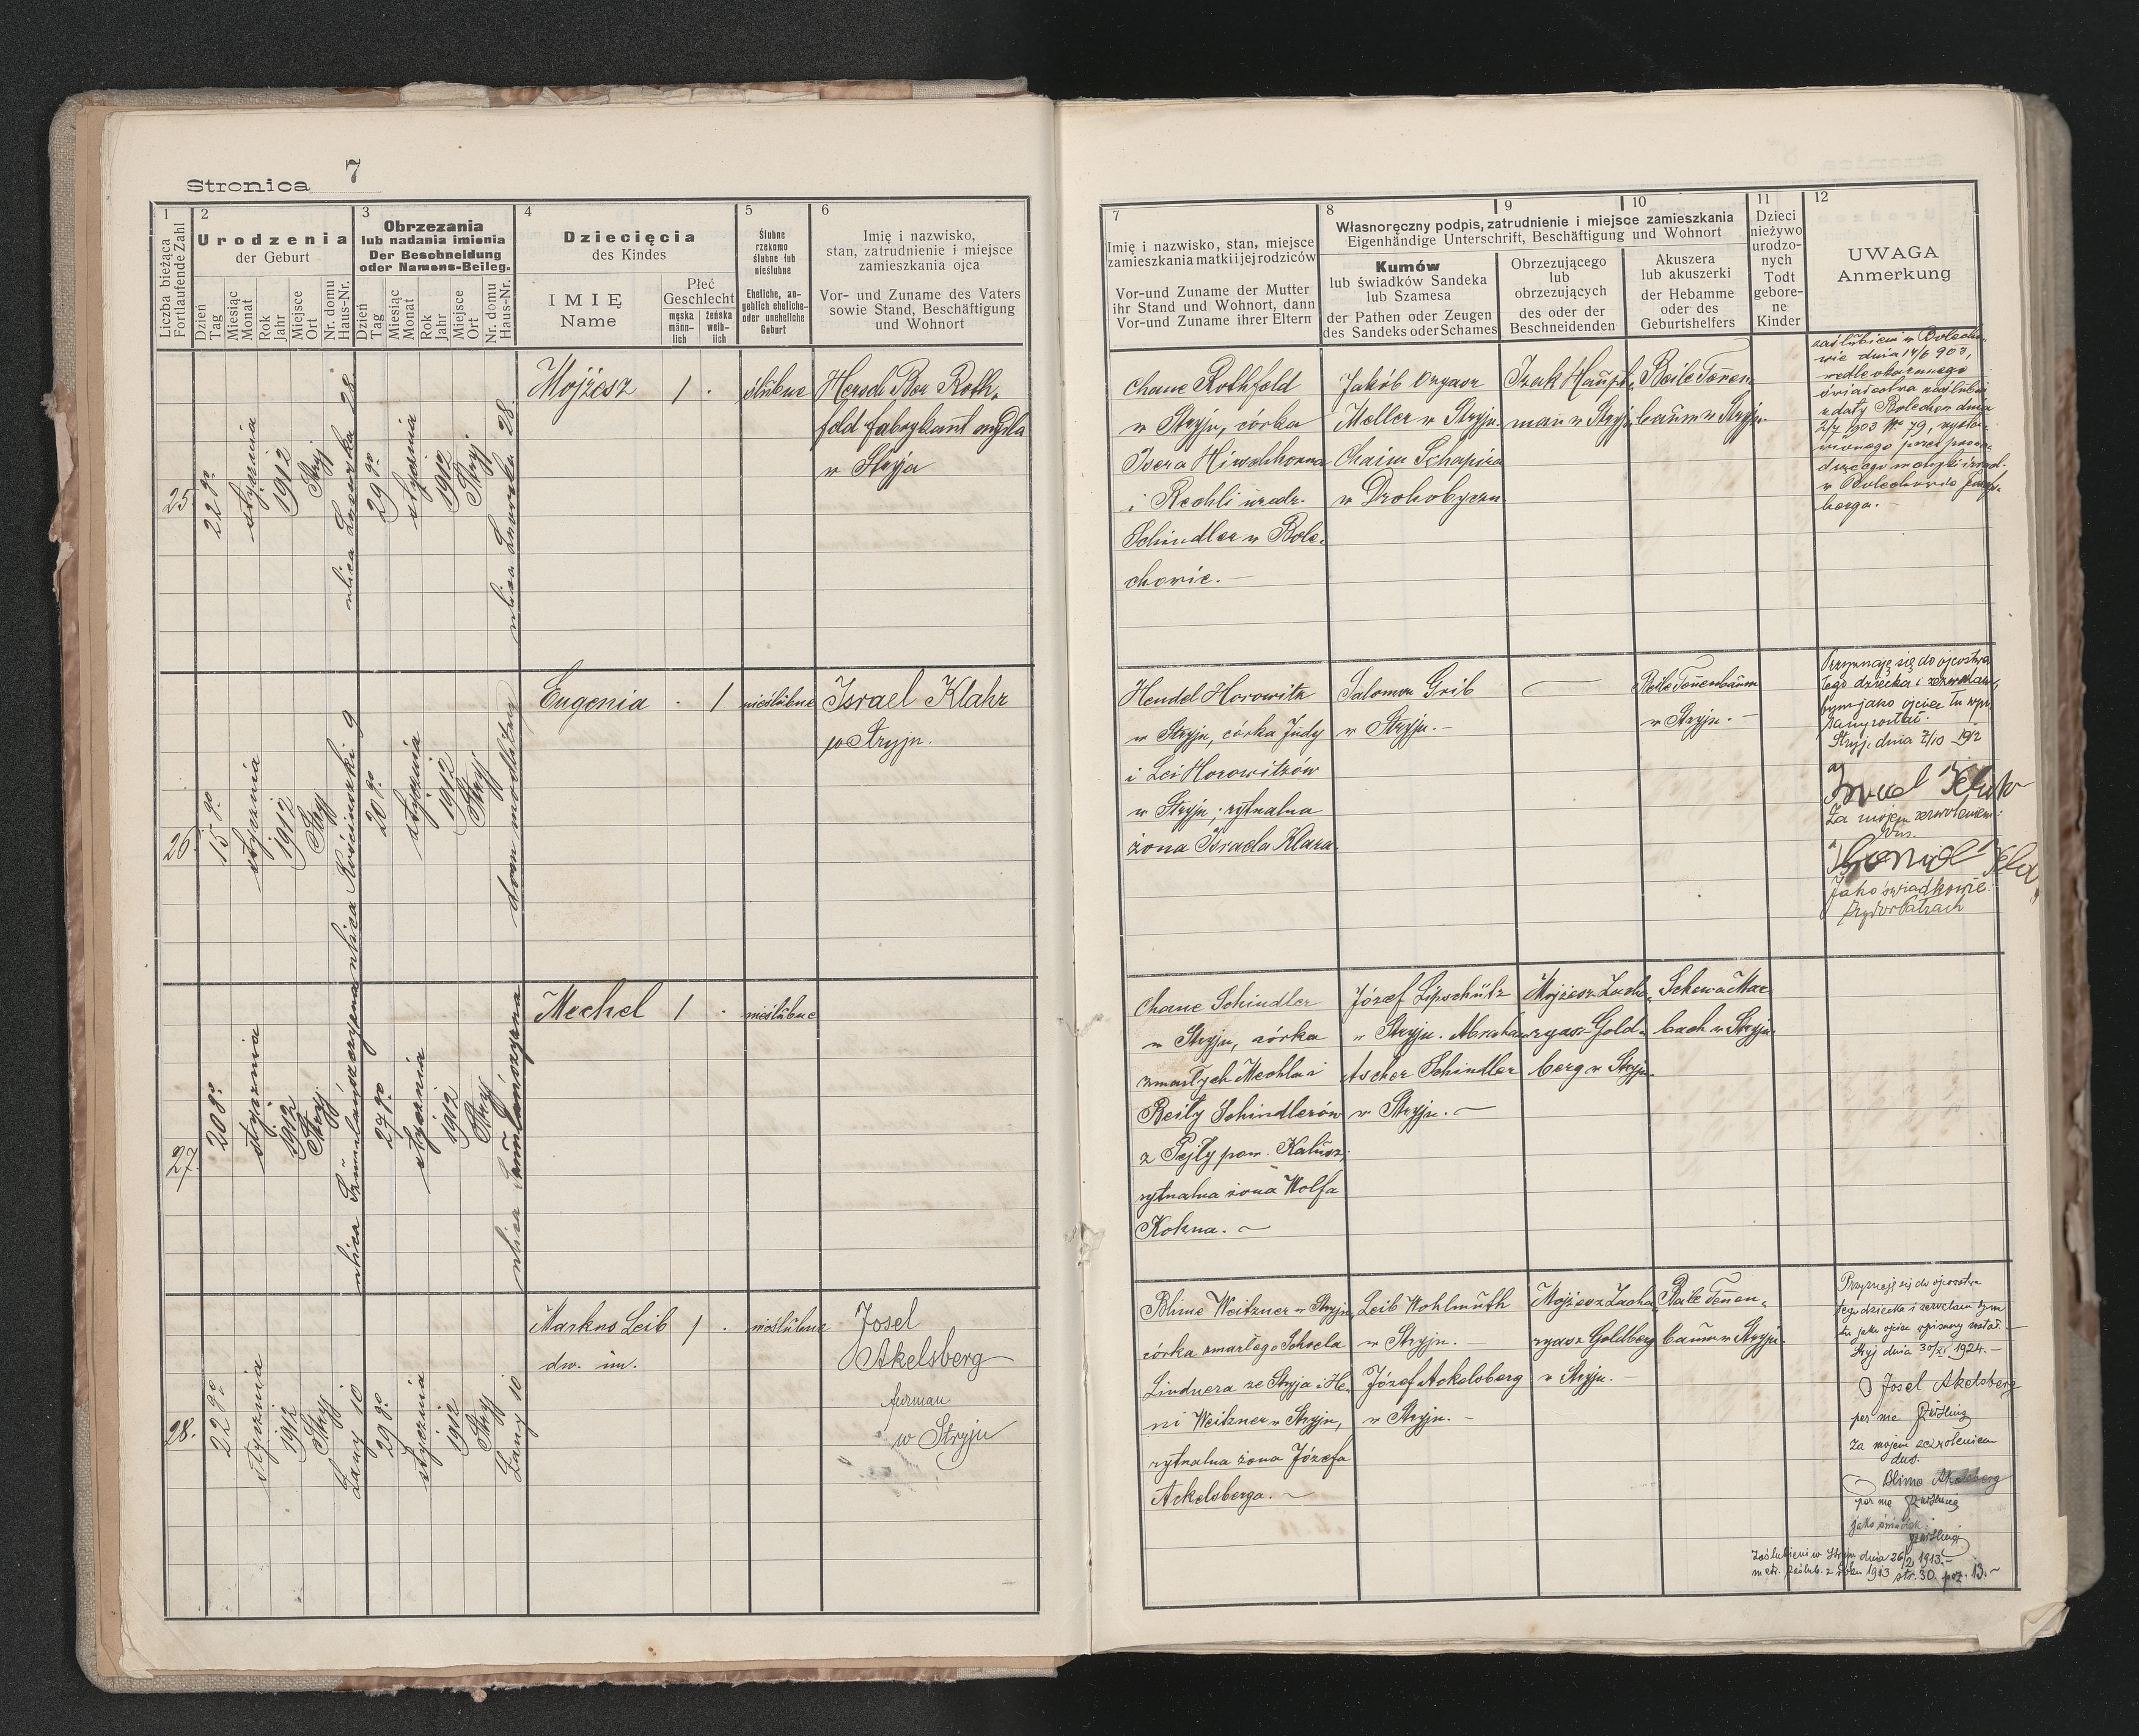 Stronica 7
1
Liczba bieżąca
Fortlaufende Zahl
2
Urodzenia
der Geburt
Dzień
Tag
Miesiąc
Monat
Rok
Jahr
Miejsce
Ort
Nr. domu
Haus-Nr.
3
Obrzezania
lub nadania imienia
Der Beschneidung
oder Namens-Beileg.
Dzień
Tag
Miesiąc
Monat
Rok
Jahr
Miejsce
Ort
Nr. domu
Haus-Nr.
4
Dziecięcia
des Kindes
IMIĘ
Name
Płeć
Geschlecht
męska
männ-
lich
żeńska
weib-
lich
5
Ślubne
rzekomo
ślubne lub
nieślubne
Eheliche, an-
geblich eheliche-
oder uneheliche
Geburt
6
Imię i nazwisko,
stan, zatrudnienie i miejsce
zamieszkania ojca
Vor- und Zuname des Vaters
sowie Stand, Beschäftigung
und Wohnort
7
Imię i nazwisko, stan, miejsce
zamieszkania matki i jej rodziców
Vor-und Zuname der Mutter
ihr Stand und Wohnort, dann
Vor-und Zuname ihrer Eltern
8
9
10
Własnoręczny podpis, zatrudnienie i miejsce zamieszkania
Eigenhändige Unterschrift, Beschäftigung und Wohnort
Kumów
lub świadków Sandeka
lub Szamesa
der Pathen oder Zeugen
des Sandeks oder Schames
Obrzezującego
lub
obrzezujących
des oder der
Beschneidenden
Akuszera
lub akuszerki
der Hebamme
oder des
Geburtshelfers
11
Dzieci
nieżywo
urodzo-
nych
Todt
gebore-
ne
Kinder
12
UWAGA
Anmerkung
25
22go
stycznia
1912
Stryj
ulica Lwowska 28
29go
stycznia
1912
Stryj
ulica Lwowska 28
Mojżesz
1
ślubne
Hersch Ber Roth-
feld fabrykant mydła
w Stryju
Chane Rothfeld
w Stryju, córka
Isera Hirschhorna
i Rechli urodz.
Schindler w Bole-
chowie.
Jakób
Meller w Stryju.
Chaim Schapira
w Drohobyczu
Izak Haupt-
mann w Stryju
Beile Tennen-
baum w Stryju
zaślubieni w Bolecho-
wie dnia 14/6 903,
wedle okazanego
świadectwa zaślubin
z daty Bolechów dnia
2/7 1903 No 79, wysta-
wionego przez prowa-
dzącego metryki izrael.
w Bolechowie
26
15go
stycznia
1912
Stryj
ulica Kościuszki 9
20go
stycznia
1912
Stryj
dom modlitwy
Eugenia
1
nieślubne
Israel Klahr
w Stryju.
Hendel Horowitz
w Stryju, córka Judy
i Lei Horowitzów
w Stryju; rytualna
żona Israela Klara
Salomon Grib
w Stryju.
Beile Tennenbaum
w Stryju.
Przyznaję się do ojcostwa
tego dziecka i zezwalam,
bym jako ojciec tu wpi-
sany został.
Stryj, dnia 7/10 1912
Za mojem zezwoleniem:
Jako świadkowie:
27
20go
stycznia
1912
Stryj
27go
stycznia
1912
Stryj
Mechel
1
nieślubne
Chane Schindler
w Stryju, córka
zmarłych Mechla i
Reily Schindlerów
z Pejły pow. Kałusz;
rytualna żona Wolfa
Kohna.
Józef Lipschütz
w Stryju. Abraham
Ascher Schindler
w Stryju.
Mojżesz Zacha-
ryasz Gold-
berg w Stryju.
Schewa Mar-
bach w Stryju
28.
22go
stycznia
1912
Stryj
Łany 10
29go
stycznia
1912
Stryj
Łany 10
Markus Leib
dw. im.
1
nieślubne
Josel
Akelsberg
furman
w Stryju
Blime Weitzner w Stryju,
córka zmarłego Schaela
Lindnera ze Stryja i He-
ni Weitzner w Stryju,
rytualna żona Józefa
Ackelsberga.
Leib Wohlmuth
w Stryju.
Józef Ackelsberg
w Stryju.
Mojżesz Zacha-
ryasz Goldberg
w Stryju.
Beile Tennen-
baum w Stryju.
Przyznaję się do ojcostwa
tego dziecka i zezwalam bym
tu jako ojciec wpisany został.
Stryj dnia 30/XI 1924.
Josel Akelsberg
per me
Za mojem zezwoleniem
Blime Akelsberg
per me
jako świadek:
Zaślubieni w Stryju dnia 26/2 1913.
metr. zaślub. z roku 1913 str. 30. poz. 13.